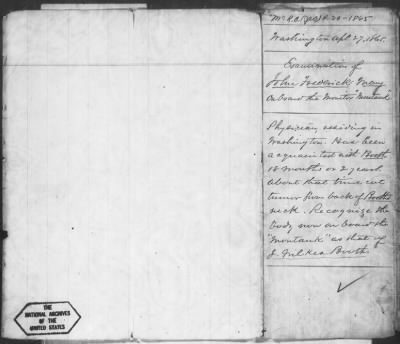 Washington Apl 27, 1865.
Examination of
John Frederick May
on board the Monitor "Montauk"
Physician residing in
Washington. Have been
acquainted with Booth
18 months or 2 years.
About that time cut
tumor from back of Booth's
neck. Recognize the
body now on board the
"Montauk" as that of
J. Wilkes Booth.
THE
NATIONAL ARCHIVES
OF THE
UNITED STATES